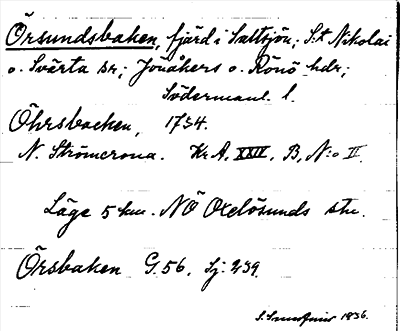 Örsundsbaken, fjärd i Saltsjön; S:t Nikolai
o. Svärta sn; Jönåkers o. Rönö hdr;
Södermanl. l.
Öhrsbacken, 1734.
N. Strömcrona. Kr. A. XXIV, B, N:o II.
Läge 5 km. NÖ Oxelösunds stn.
Örsbaken G. 56, Sj. 239.
1836.